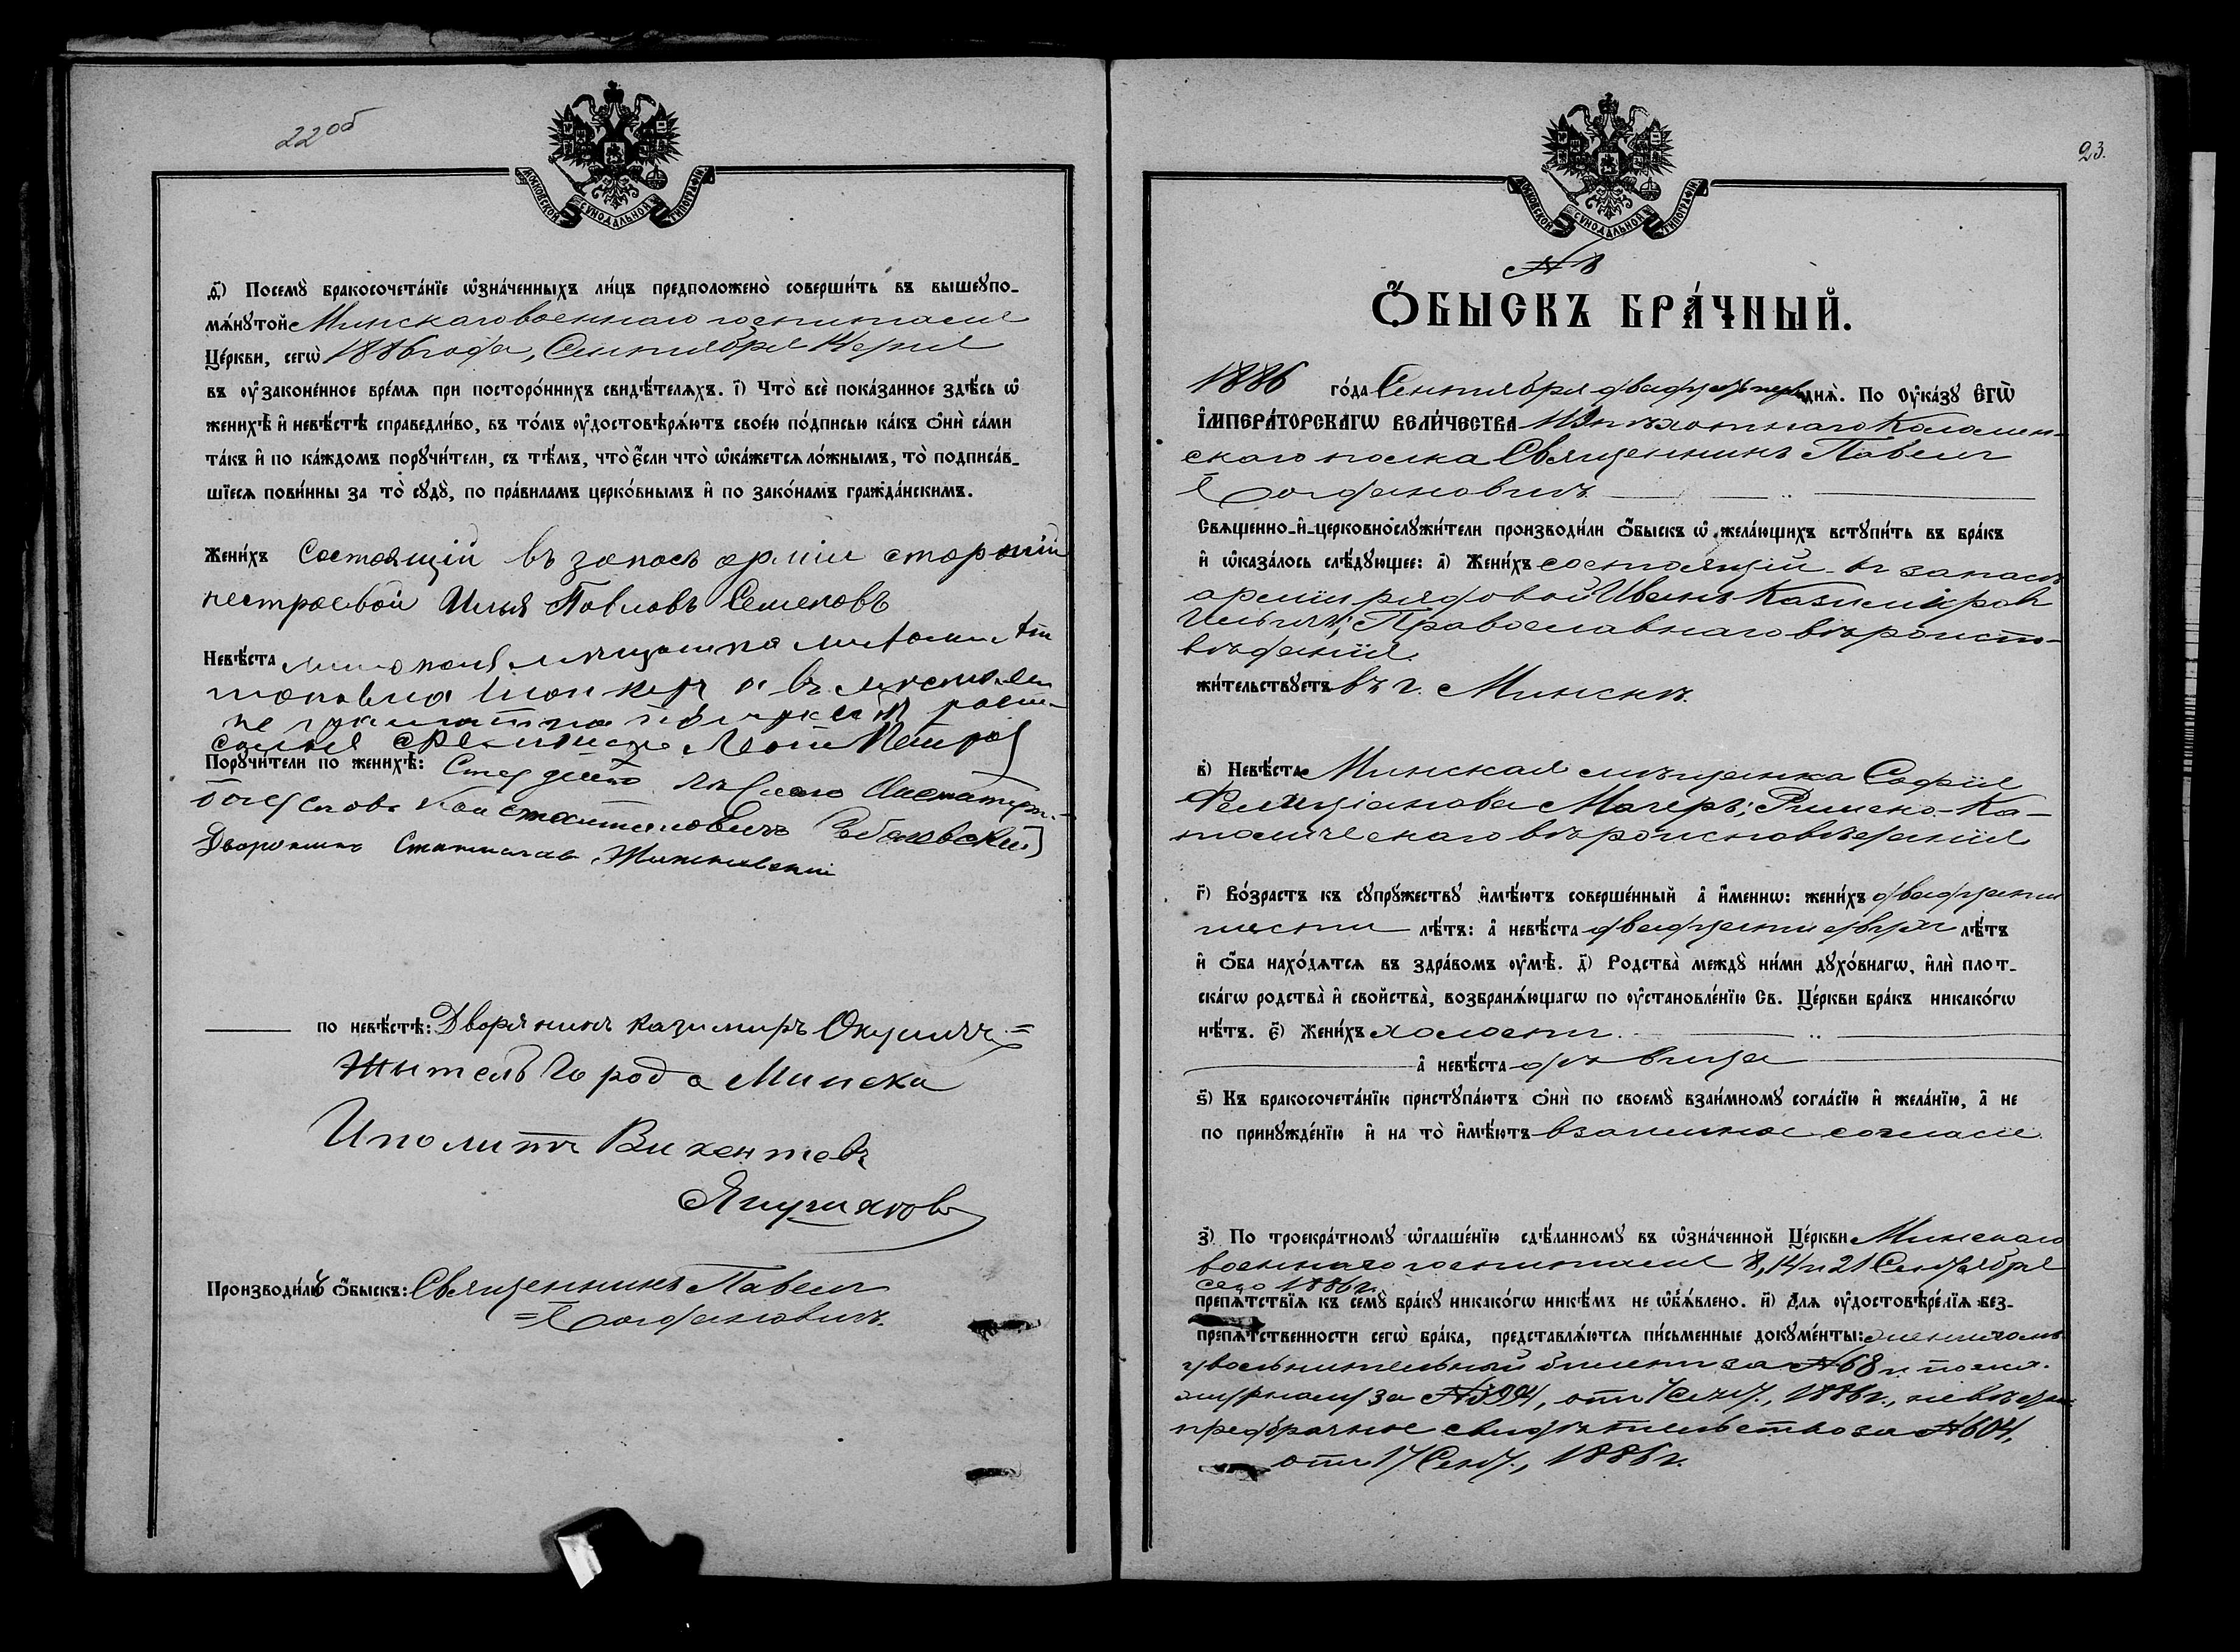 22об
МОСКОВСКОЙ СѴНОДАЛЬНОЙ ТИПОГРАФІИ
Посемꙋ̀ бракосочета́нїе ѡ҆зна́ченныхъ ли́цъ предположено̀ соверши́ть въ вышеꙋпо-
мѧ́нꙋтой Минскаго военнаго госпиталя
Це́ркви, сегѡ̀ 1886 года, Сентября 14 дня
въ ᲂу҆законе́нное вре́мѧ при посторо́ннихъ свидѣ́телѧхъ. і҃) Что̀ всѐ пока́занное здѣ́сь ѡ҆
женихѣ̀ и҆ невѣ́стѣ справедли́во, въ то́мъ ᲂу҆достовѣрѧ́ютъ свое́ю по́дписью ка́къ ѻ҆нѝ са́ми
та́къ и҆ по ка́ждомъ порꙋчи́тели, съ тѣ́мъ, что̀ є҆́сли что̀ ѡ҆ка́жетсѧ ло́жнымъ, то̀ подписа́в-
шїесѧ пови́нны за то̀ сꙋдꙋ̀, по пра́виламъ церко́внымъ и҆ по зако́намъ гражда́нскимъ.
Жени́хъ Состоящій въ запасѣ арміи старшій
нестроевой Илья Павловъ Семеновъ
Невѣ́ста
Порꙋчи́тели по женихѣ̀:
Константиновичъ
Дворянинъ Станиславъ
по невѣ́стѣ: Дворянинъ Казимиръ Окуличъ
Житель Города Минска
Иполитъ Викентевъ
Производи́лъ ѻ҆́быскъ: Священникъ Павелъ
Богдановичъ.
23.
МОСКОВСКОЙ СѴНОДАЛЬНОЙ ТИПОГРАФІИ
№ 8
Ѻ҆́БЫСКЪ БРА́ЧНЫЙ.
1886 го́да Сентября двадцать перв дня̀. По Оу҆ка́зꙋ Є҆ГѠ̀
І҆МПЕРА́ТОРСКАГѠ ВЕЛИ́ЧЕСТВА Пѣхотнаго Коломен-
скаго полка Священникъ Павелъ
Богдановичъ
Свѧще́нно-и҆-церковнослꙋжи́тели производи́ли ѻ҆́быскъ ѡ҆ жела́ющихъ встꙋпи́ть въ бра́къ
и҆ ѡ҆каза́лось слѣ́дꙋющее: а҃) Жени́хъ состоящій въ запасѣ
арміи рядовой Иванъ Казимировъ
Православнаго вѣроиспо-
вѣданія.
жи́тельствꙋетъ въ г. Минскѣ.
в҃) Невѣ́ста Минская мѣщанка Софія
Фелиціанова Мачеръ; Римско-Ка-
толическаго вѣроисповѣданія
г҃) Во́зрастъ къ сꙋпрꙋжествꙋ и҆мѣ́ютъ соверше́нный а҆̀ и҆́меннѡ: жени́хъ двадцати
шести лѣ́тъ: а҆̀ невѣ́ста двадцати двухъ лѣ́тъ
и҆ ѻ҆́ба нахо́дѧтсѧ въ здра́вомъ ᲂу҆мѣ̀. д҃) Родства̀ междꙋ̀ ни́ми дꙋхо́внагѡ, и҆лѝ плот-
ска́гѡ родства̀ и҆ свойства̀, возбранѧ́ющагѡ по ᲂу҆становле́нїю Св. Це́ркви бра́къ никако́гѡ
нѣ́тъ. є҃) Жени́хъ холостъ
а҆̀ невѣ́ста дѣвица
ѕ҃) Къ бракосочета́нїю пристꙋпа́ютъ ѻ҆нѝ по своемꙋ̀ взаи́мномꙋ согла́сїю и҆ жела́нїю, а҆̀ не
по принꙋжде́нїю и҆ на то̀ и҆мѣ́ютъ взаимное согласіе
з҃) По троекра́тномꙋ ѡ҆глаше́нїю сдѣ́ланномꙋ въ ѡ҆зна́ченной Це́ркви Минскаго
военнаго госпиталя 8, 14 и 21 Сентября
сего 1886 г.
препѧ́тствїѧ къ семꙋ̀ бра́кꙋ никако́гѡ никѣ́мъ не ѡ҆б̾ѧ́влено. и҃) Длѧ ᲂу҆достовѣре́нїѧ без-
препѧ́тственности сегѡ̀ бра́ка, представлѧ́ютсѧ пи́сьменные докꙋме́нты: женихомъ
увольнительный билетъ за № 68
за № 394, отъ 7 Сент., 1886 г.,
предбрачное свидѣтельство за № 604,
отъ 17 Сент., 1886 г.